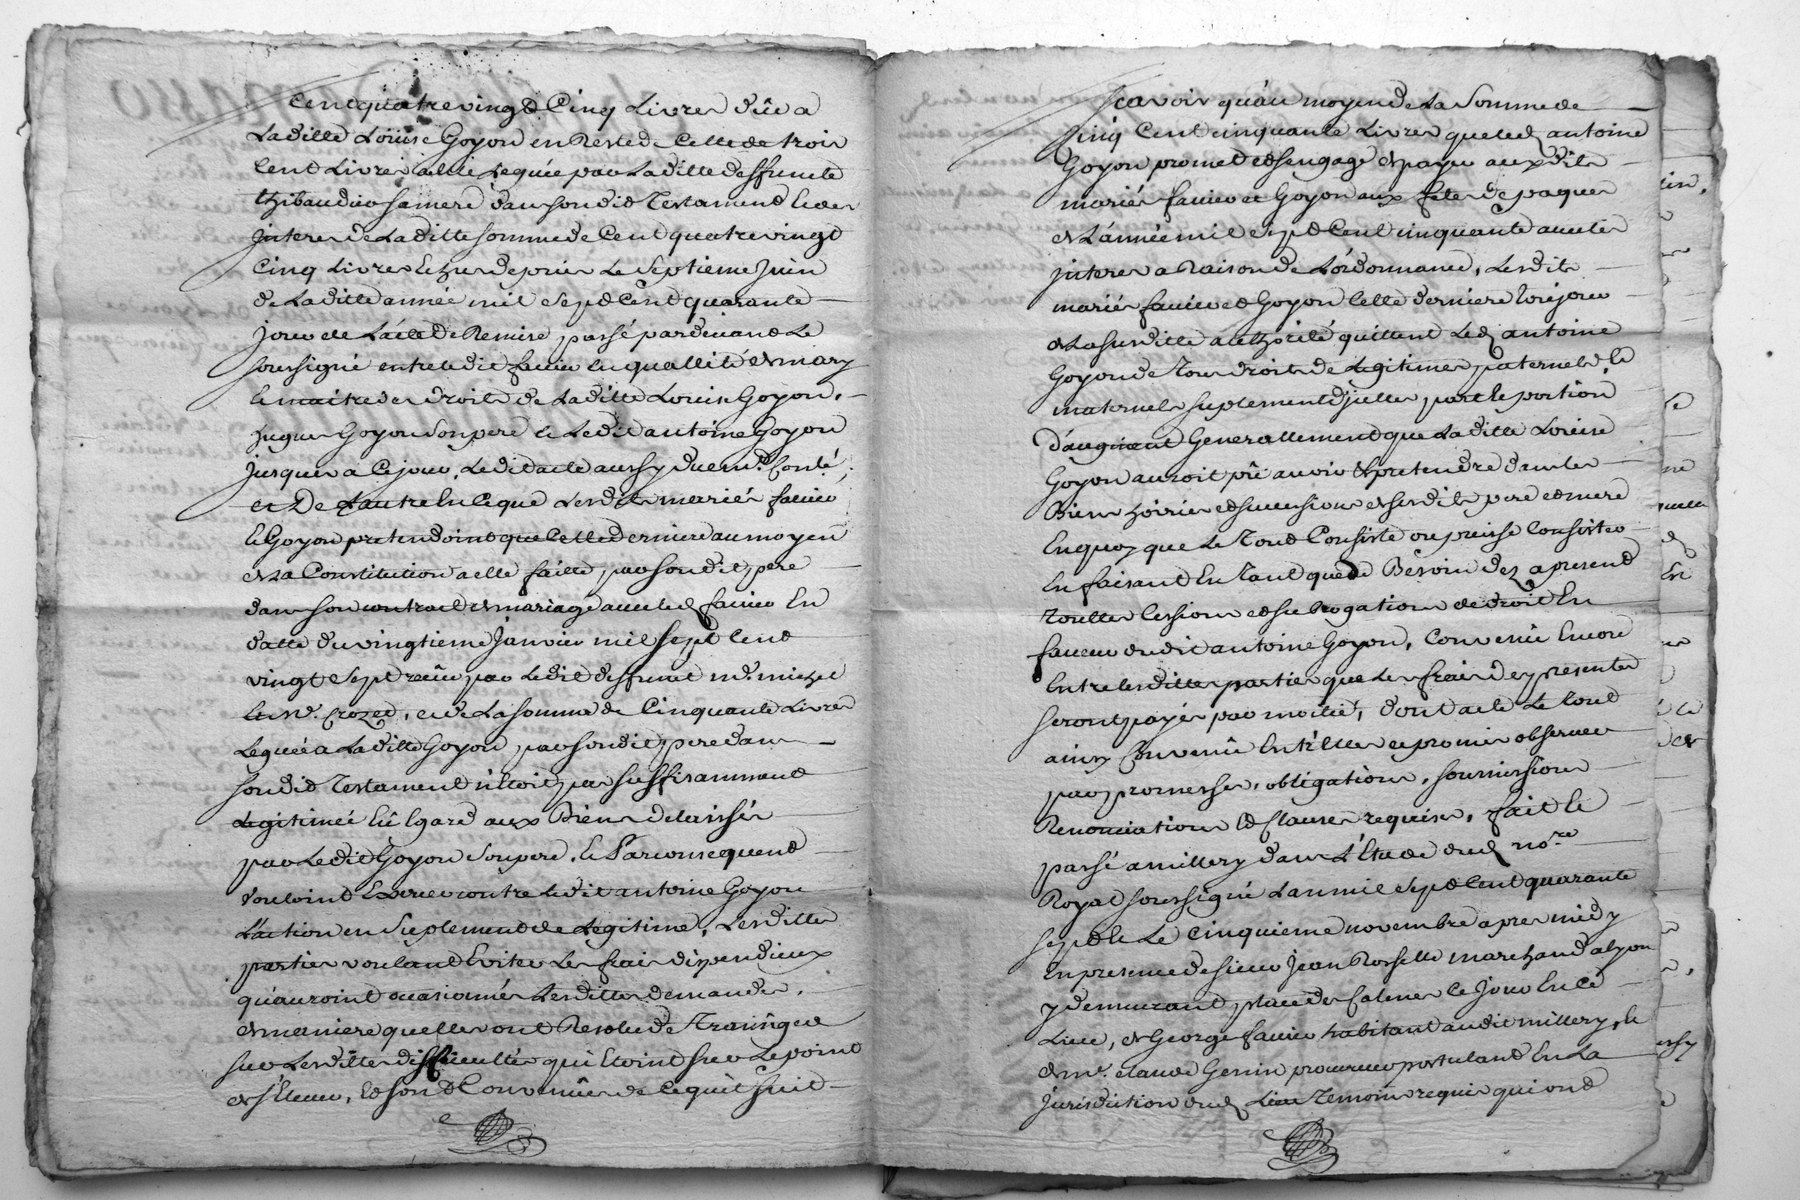 Cent quatre vingt Cinq Livres dûe a
Laditte Loüise Goyon en Reste de Celle de trois
Cent Livres a elle Leguée par Laditte deffuncte
thibaudier sa mere dans son dit Testament Le des
jnterets de Laditte somme de Cent quatre vingt
Cinq Livres Echus depuis Le Septieme Juin
de Laditte année mil Sept Cent quarante
jour de L'acte de Remise passé pardevant Le
soussigné entre ledit faure En quallité de mary
Et maitre des droits de Laditte Louise Goyon,
hugues Goyon Son pere Et Ledit antoine Goyon
jusques a Ce jour, Ledit acte aussy duement Conté,
et De L'autre En Ce que Lesdits mariés faure
Et Goyon pretendoint que Cette derniere au moyen
de La Constitution a elle faitte, par son dit pere
dans son contract de mariage avec led. faure En
datte du vingtieme Janvier mil Sept Cent
vingt Sept reçeu par Ledit deffunct me. michel
Crozet, et de La somme de Cinquante Livres
Leguée a Laditte Goyon par son dit pere dans
son dit Testament n'Etoit pas suffisamment
Legitimée Eû Egard aux Biens delaissés
par Ledit Goyon Son pere, Et Par consequent
vouloint Exercer contre Ledit antoine Goyon
L'action en Suplement de Legitime, Lesdittes
parties voulant Eviter Les frais dispendieux
qu'auroint occasionnés Lesdittes demandes,
de maniere quelles ont Resolu de Transiger
sur Lesdittes difficultés qui Etoint sur Le point
de s'Elever, Et sont Convenües de Ce qui Suit
Scavoir qu'au moyen de La Somme de
Cinq Cent cinquante Livres que led. antoine
Goyon promet et s'engage de payer auxdits
mariés faure et Goyon aux fetes de paques
de L'année mil Sept Cent cinquante avec les
jnterets a Raison de L'ordonnance, Lesdits
mariés faure et Goyon Cette derniere toujours
de La susditte authorité quittent Led. antoine
Goyon de Tous droits de Legitimes paternels, Et
maternels suplement d'jcelles part Et portion
d'augment Generallement que Laditte Loüise
Goyon auroit pû avoir Et pretendre dans les
Biens hoiries et successions de ses dits pere et mere
En quoy que Le Tout Consiste ou puisse Consister
En faisant En Tant que de Besoin des a present
Touttes Cessions et subrogations de droit En
faveur dudit antoine Goyon, Convenû Encore
Entre Lesdittes parties que Les frais des presentes
seront payés par moitié, dont acte Le tout
ainsy Convenû Entr'Elles et promis observer
par promesses, obligations, soumissions
Renonciations Et Clauses requises, fait Et
passé a millery dans L'Etude dud. nore.
Royal soussigné L'an mil Sept Cent quarante
sept Et Le Cinquieme novembre apres midy
En presence de sieur Jean Rosselle marchand a Lyon
y demeurant place des Carmes Ce Jour En Ce
Lieu, de George faure habitant audit millery, Et
de me. claude Genin procureur postulant En La
Jurisdiction dud. Lieu Temoins requis qui ont